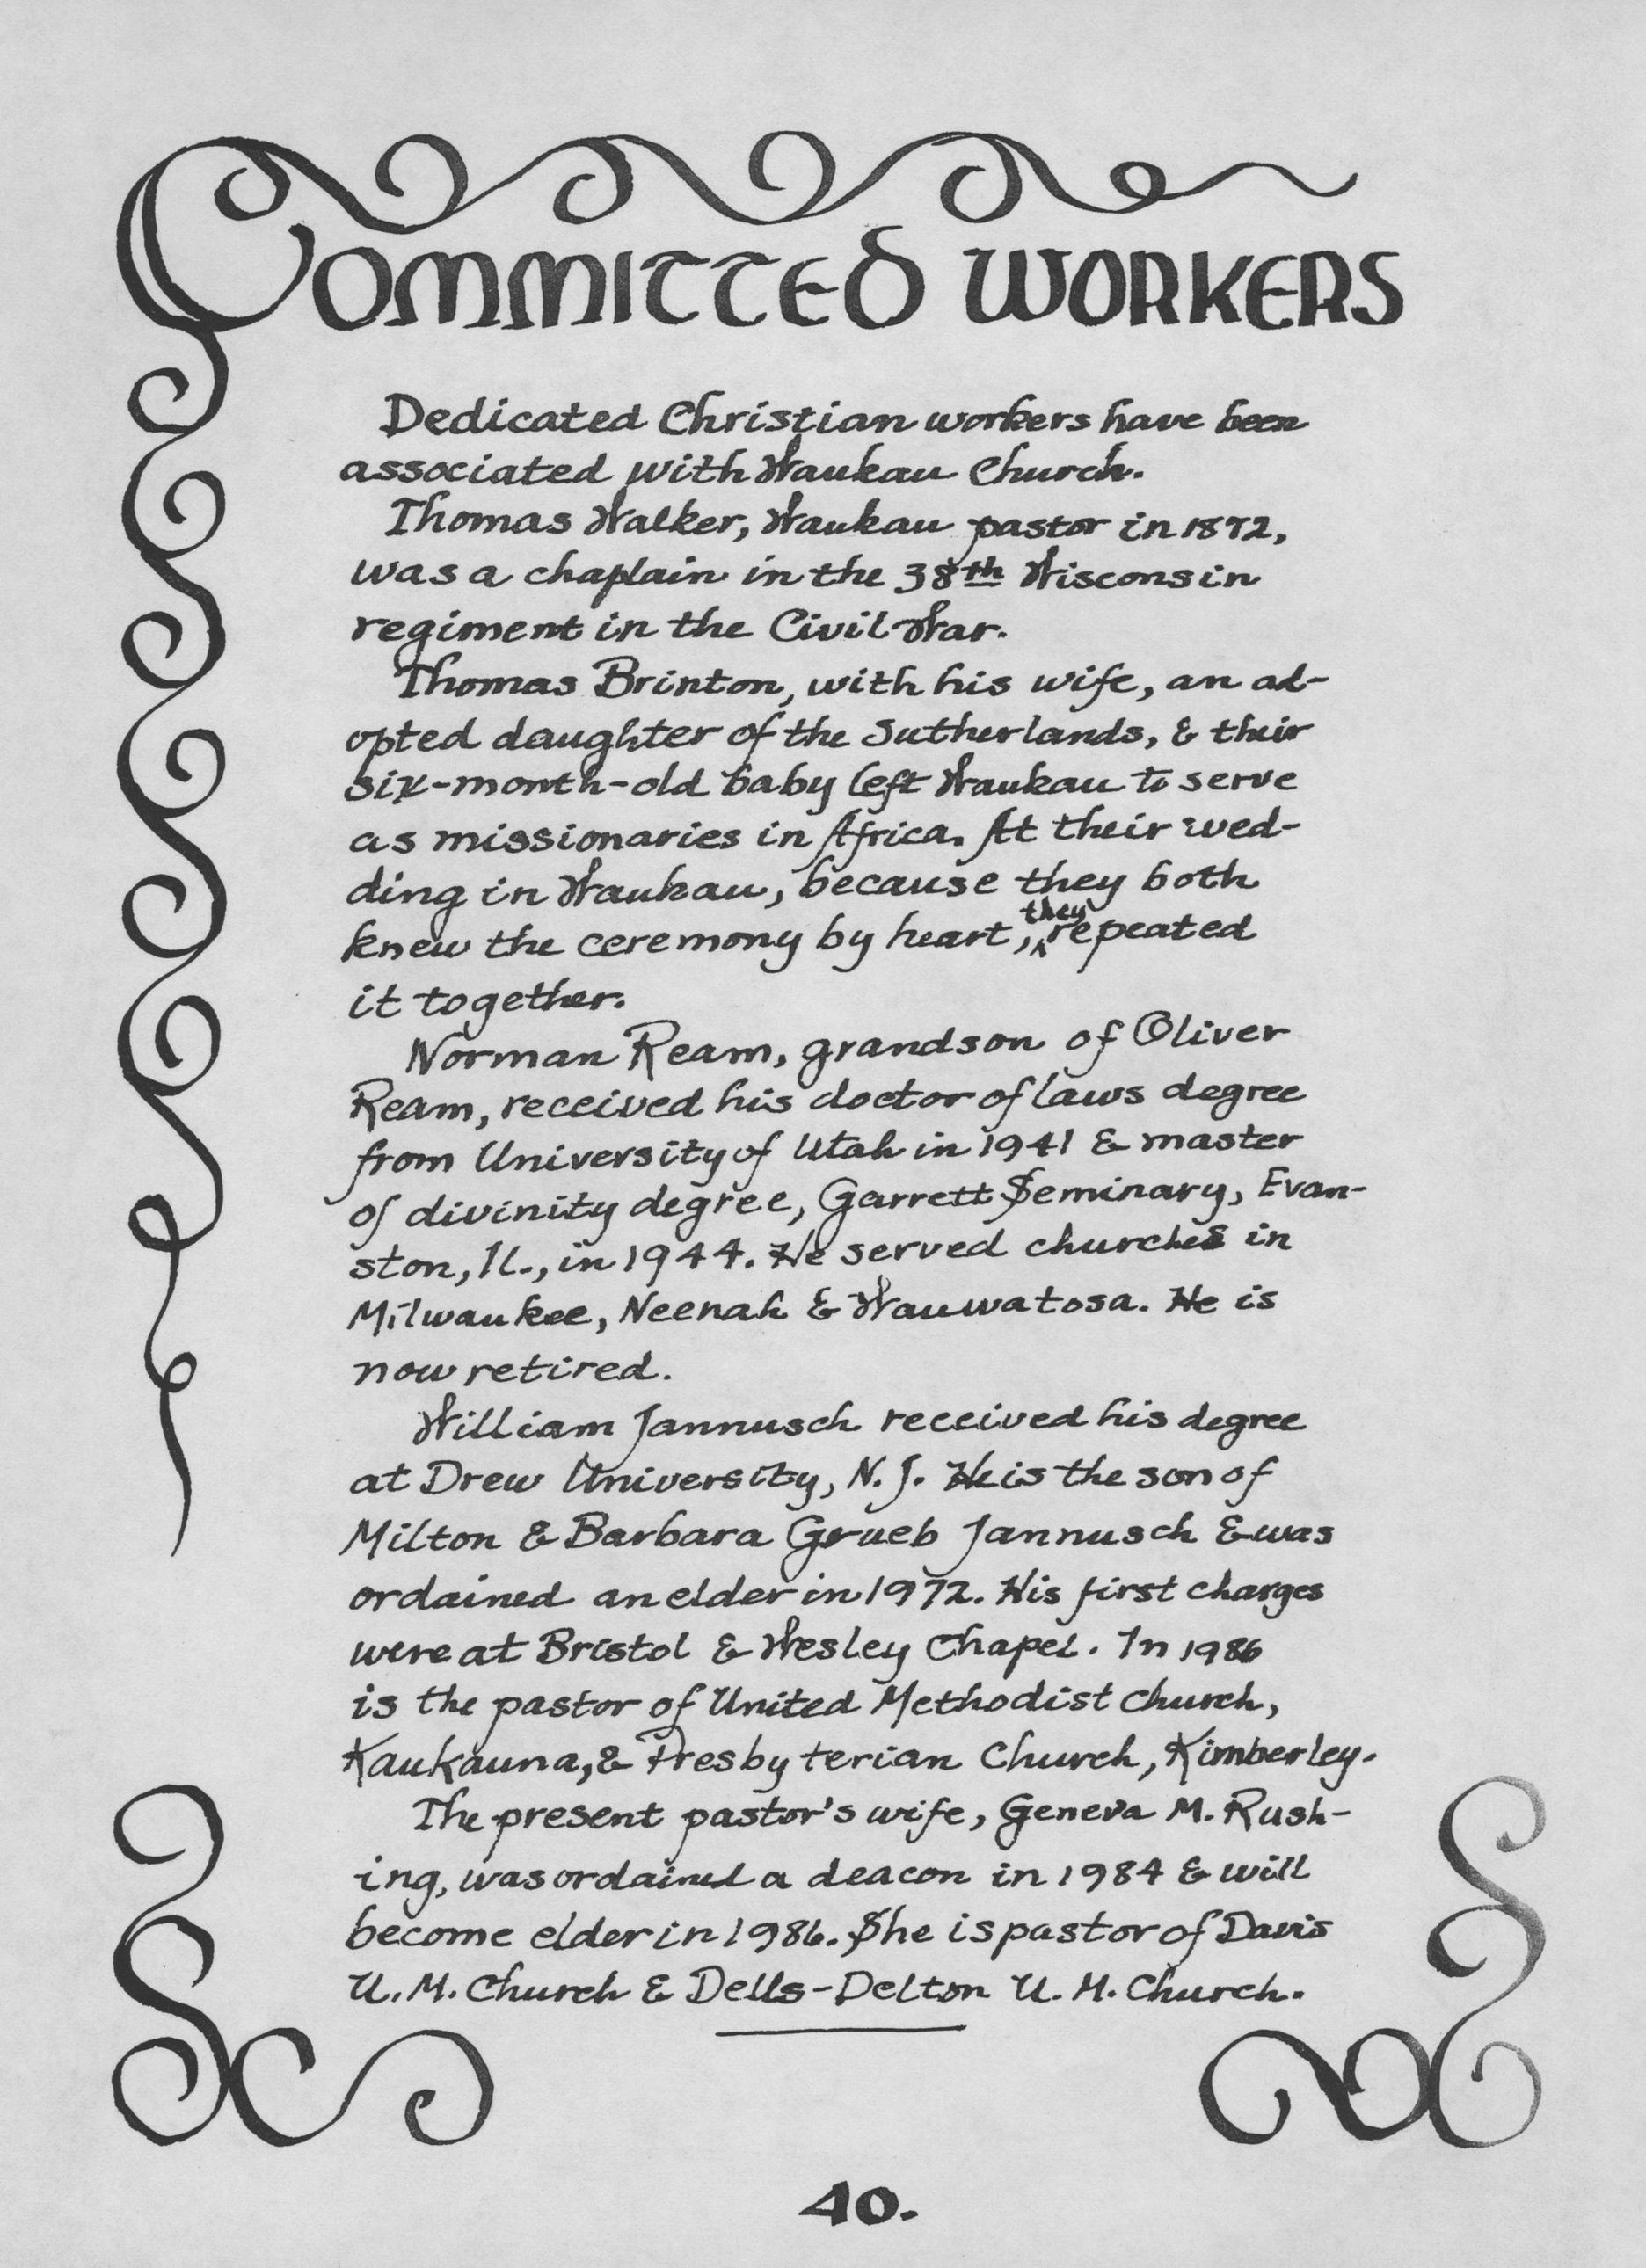 COMMITTED WORKERS
Dedicated Christian workers have been
associated with Waukau Church.
Thomas Walker, Waukau pastor in 1872,
was a chaplain in the 38th Wisconsin
regiment in the Civil War.
Thomas Brinton, with his wife, an ad-
opted daughter of the Sutherlands, & their
six-month-old baby left Waukau to serve
as missionaries in Africa. At their wed-
ding in Waukau, because they both
knew the ceremony by heart, they repeated
it together.
Norman Ream, grandson of Oliver
Ream, received his doctor of laws degree
from University of Utah in 1941 & master
of divinity degree, Garrett Seminary, Evan-
ston, Il., in 1944. He served churches in
Milwaukee, Neenah & Wauwatosa. He is
now retired.
William Jannusch received his degree
at Drew University, N. J. He is the son of
Milton & Barbara Grueb Jannusch & was
ordained an elder in 1972. His first charges
were at Bristol & Wesley Chapel. In 1986
is the pastor of United Methodist church,
Kaukauna, & Presbyterian Church, Kimberley.
The present pastor's wife, Geneva M. Rush-
ing, was ordained a deacon in 1984 & will
become elder in 1986. She is pastor of Davis
U. M. Church & Dells-Delton U. M. Church.
40.